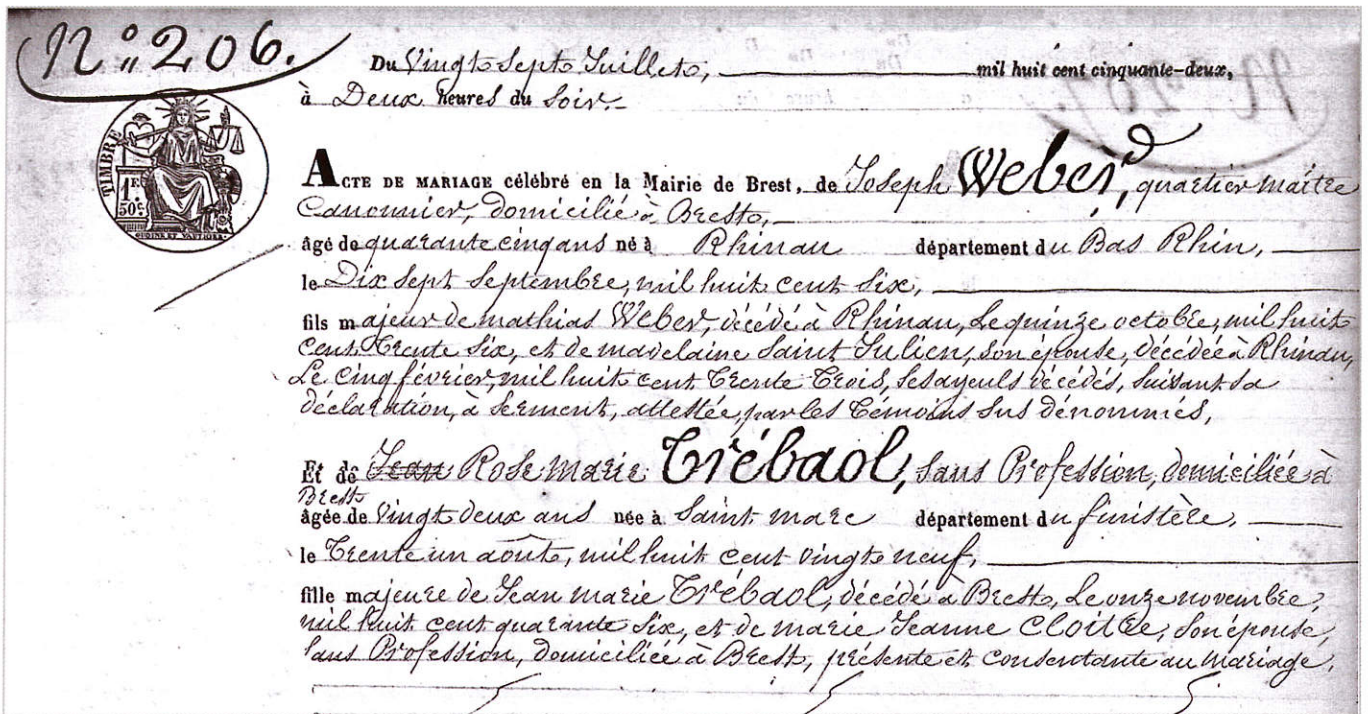 N° 206.
Du Vingt Sept Juillet, mil huit cent cinquante-deux,
à Deux heures du Soir.
TIMBRE
1F
50c
ACTE DE MARIAGE célébré en la Mairie de Brest, de Joseph Weber, quartier maître
Canonnier, domicilié à Brest,
âgé de quarante cinq ans né à Rhinau département du Bas Rhin,
le Dix Sept Septembre, mil huit cent Six,
fils majeur de mathias Weber, décédé à Rhinau, le quinze octobre, mil huit
cent Trente Six, et de madelaine Saint Julien, son épouse, décédée à Rhinau,
Le cinq février, mil huit cent Trente Trois, ses ayeuls décédés, suivant sa
déclaration, à serment, attestée, par les Témoins sus dénommés,
Et de Jean Rose Marie Trébaol, sans Profession, domiciliée à
Brest
âgée de Vingt deux ans née à Saint marc département du finistère,
le Trente un août, mil huit cent vingt neuf,
fille majeure de Jean marie Trébaol, décédé à Brest, Le onze novembre,
mil huit cent quarante Six, et de marie Jeanne Cloitre, son épouse,
sans Profession, domiciliée à Brest, présente et consentante au mariage.